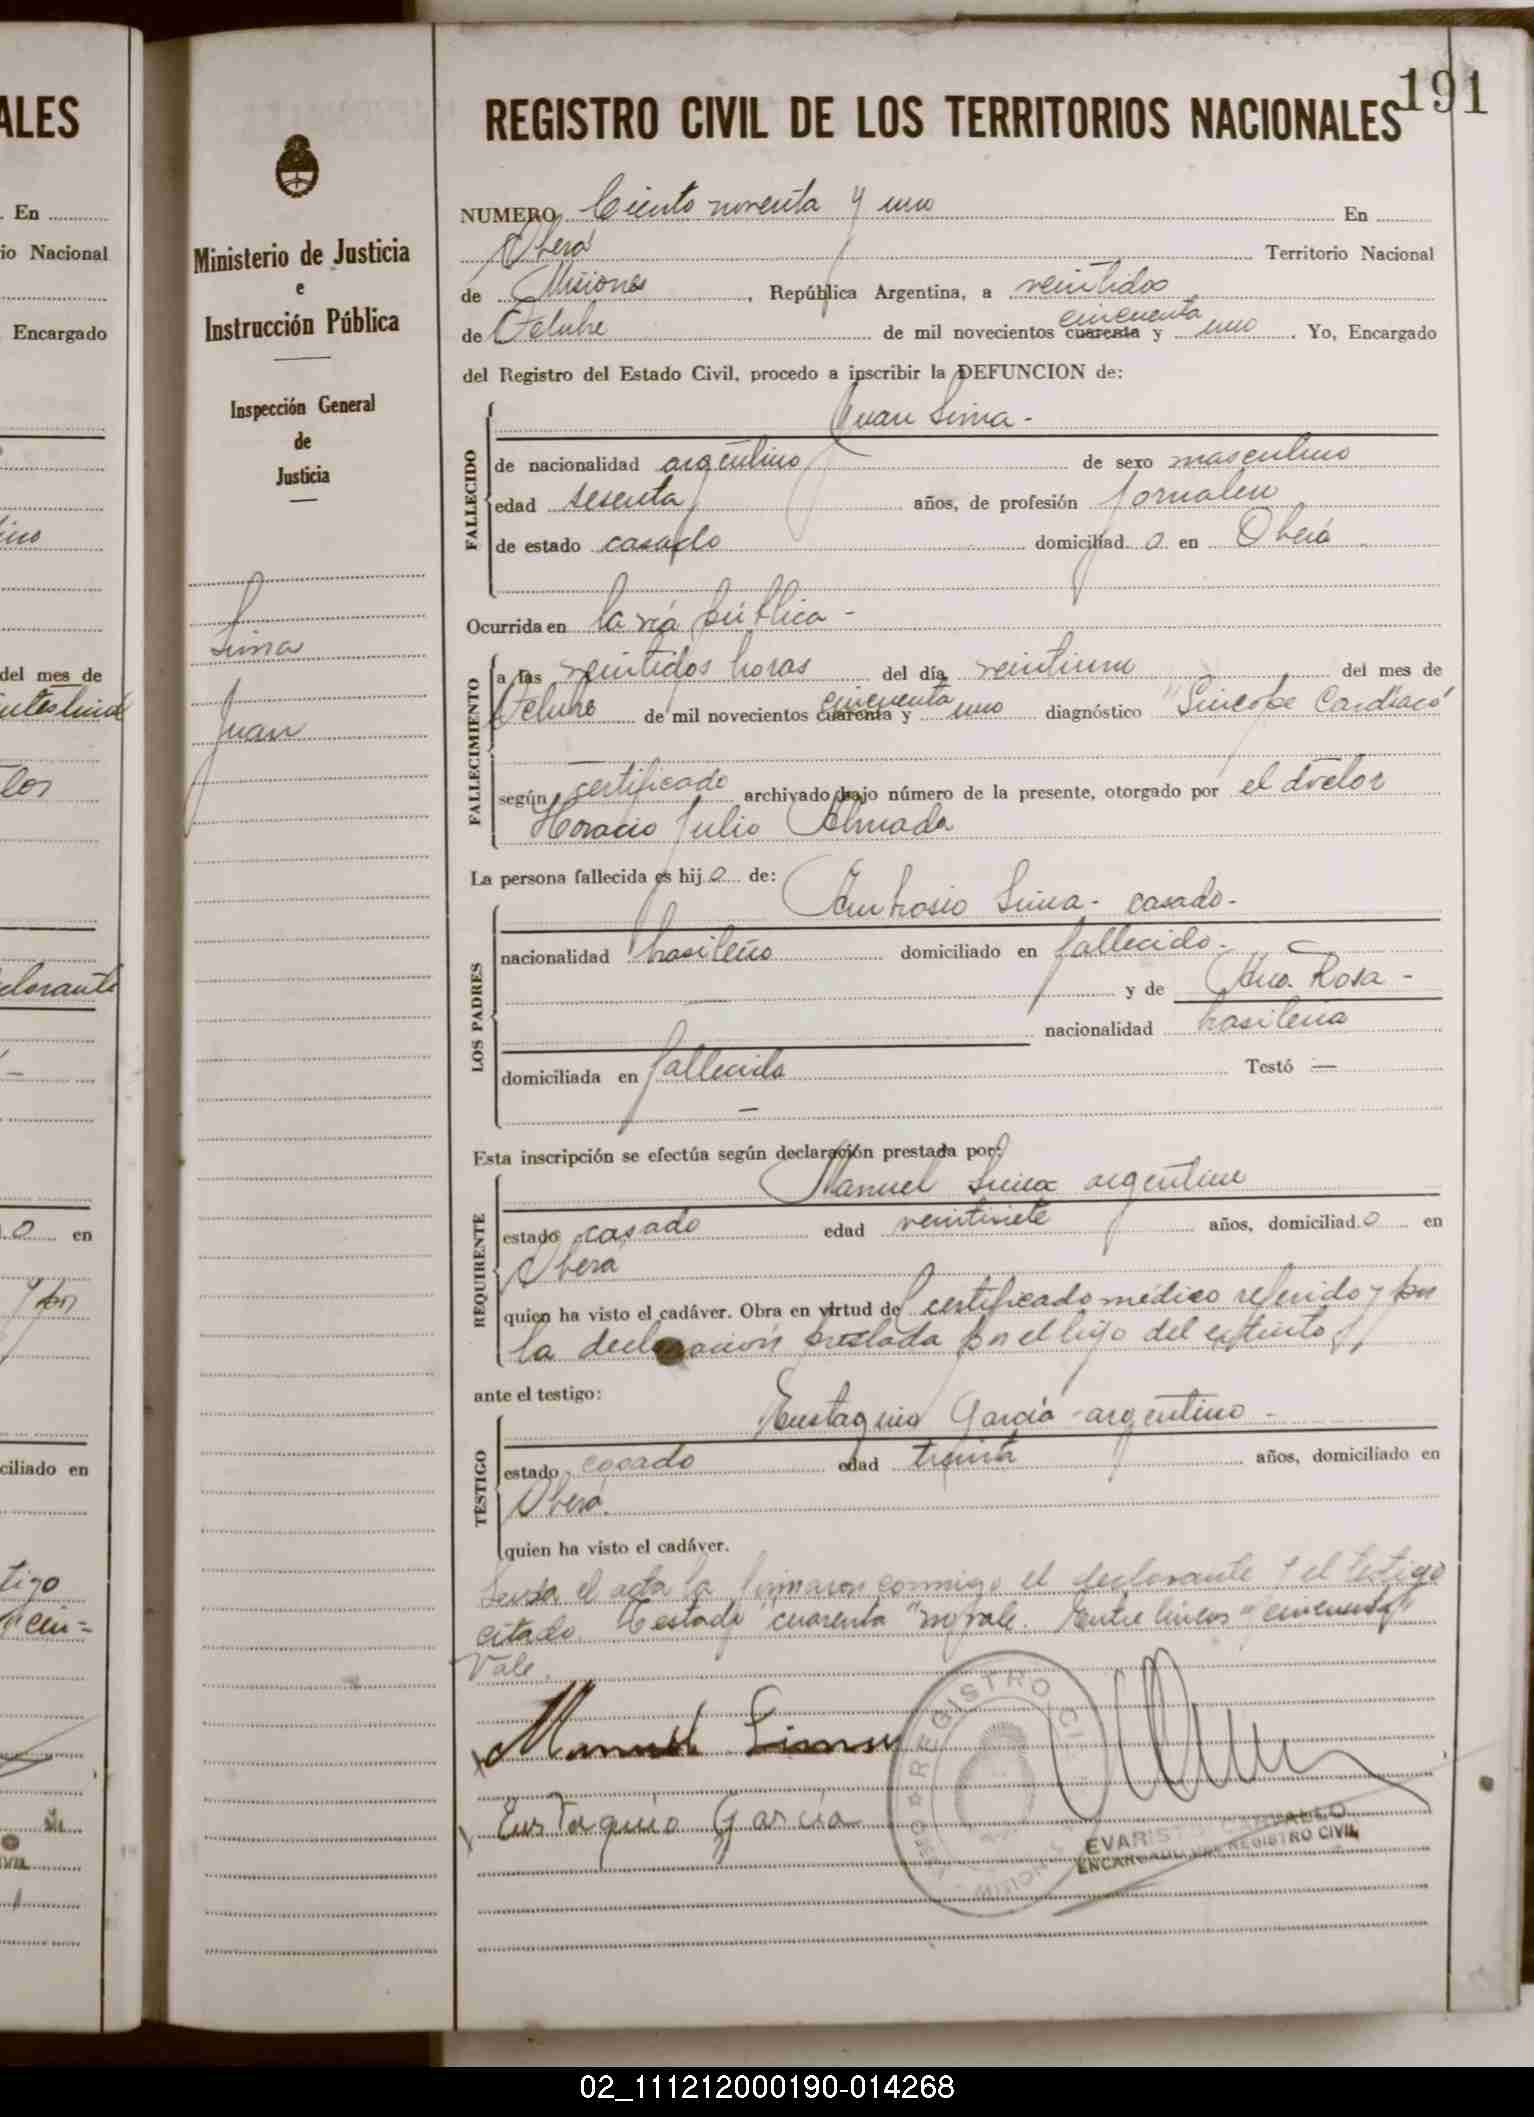 ALES
. En
io Nacional
Encargado
del mes de
0 en
ciliado en
tigo
191
Ministerio de Justicia
e
Instrucción Pública
Inspección General
de
Justicia
Lima
Juan
REGISTRO CIVIL DE LOS TERRITORIOS NACIONALES
NUMERO Ciento noventa y uno En
Oberá Territorio Nacional
de Misiones, República Argentina, a veintidos
de Octubre de mil novecientos cuarenta cincuenta y uno. Yo, Encargado
del Registro del Estado Civil, procedo a inscribir la DEFUNCION de:
FALLECIDO
Juan Lima -
de nacionalidad argentino de sexo masculino
edad sesenta años, de profesión Jornalero
de estado casado domiciliad o en Oberá
Ocurrida en la vía pública -
FALLECIMIENTO
a las veintidos horas del día veintiuno del mes de
Octubre de mil novecientos cuarenta cincuenta y uno diagnóstico "Sincope Cardiaco"
según certificado archivado bajo número de la presente, otorgado por el doctor
Horacio Julio Almada
La persona fallecida es hij o de:
LOS PADRES
Ambrosio Lima - casado -
nacionalidad brasileño domiciliado en fallecido -
y de Ana Rosa -
nacionalidad brasileña
domiciliada en fallecida Testó —
—
Esta inscripción se efectúa según declaración prestada por:
REQUIRENTE
Manuel Lima argentino
estado casado edad veintisiete años, domiciliad o en
Oberá
quien ha visto el cadáver. Obra en virtud de certificado médico referido y por
la declaración prestada por el hijo del extinto
ante el testigo:
TESTIGO
Eustaquio García - argentino -
estado casado edad treinta años, domiciliado en
Oberá.
quien ha visto el cadáver.
Leida el acta la firmaron conmigo el declarante y el testigo
citado. Testado "cuarenta" no vale. Entre lineas "cincuenta"
Vale.
Manuel Lima
Eustaquio García
REGISTRO CIVIL
EVARISTO CARVALLO
ENCARGADO DEL REGISTRO CIVIL
02_111212000190-014268